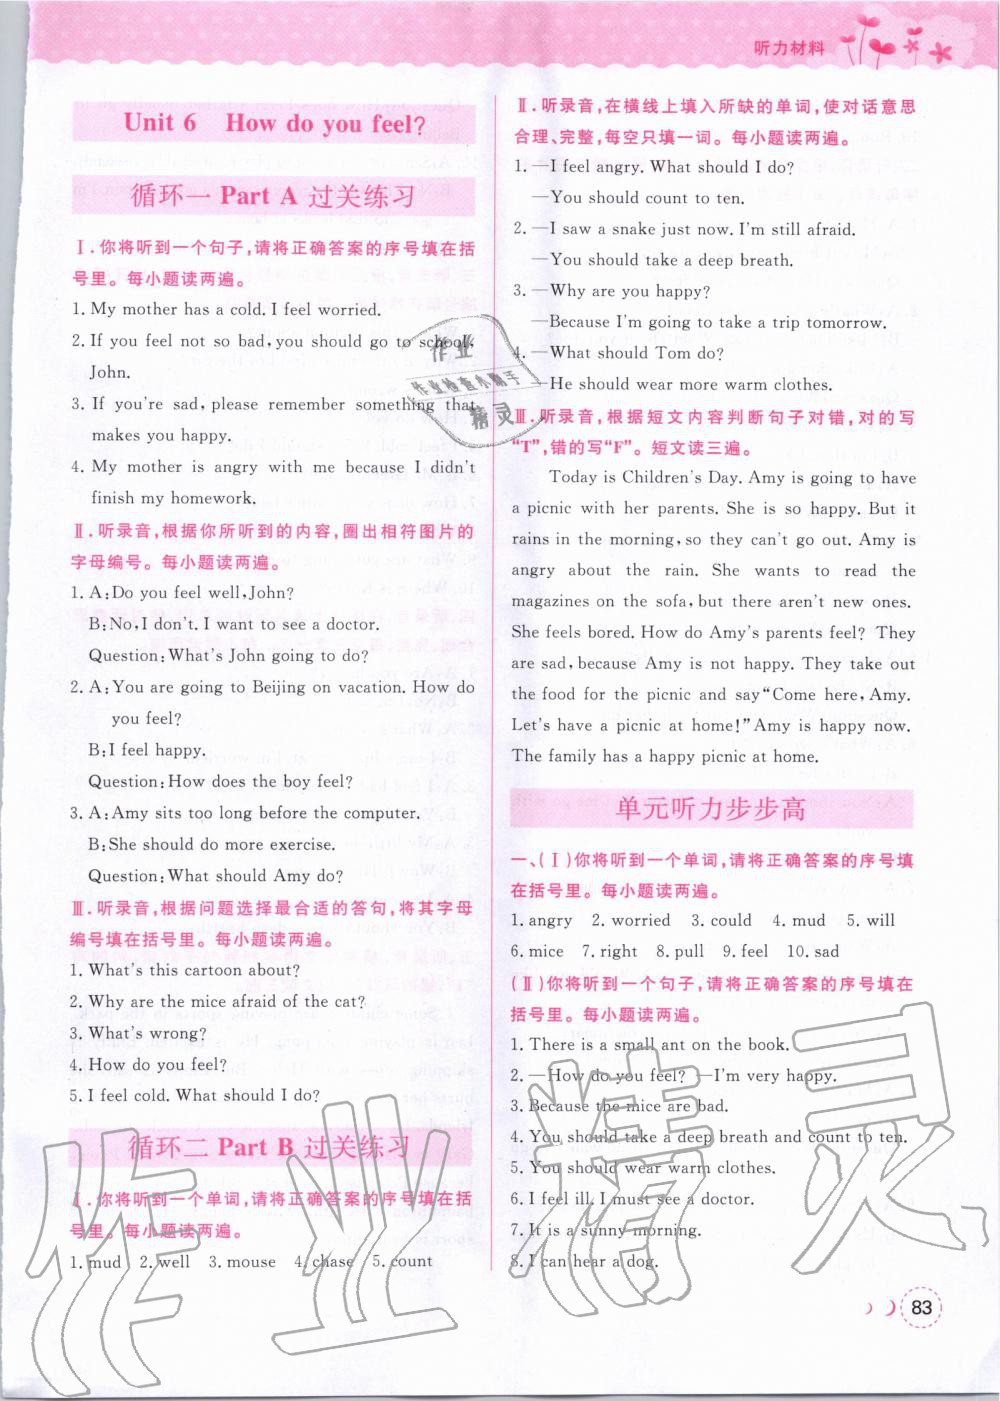 听力材料
Unit 6 How do you feel?
循环一 Part A 过关练习
Ⅰ.你将听到一个句子,请将正确答案的序号填在括
号里。每小题读两遍。
1. My mother has a cold. I feel worried.
2. If you feel not so bad, you should go to school,
John.
3. If you're sad, please remember something that
makes you happy.
4. My mother is angry with me because I didn't
finish my homework.
Ⅱ.听录音,根据你所听到的内容,圈出相符图片的
字母编号。每小题读两遍。
1. A: Do you feel well, John?
B: No, I don't. I want to see a doctor.
Question: What's John going to do?
2. A: You are going to Beijing on vacation. How do
you feel?
B: I feel happy.
Question: How does the boy feel?
3. A: Amy sits too long before the computer.
B: She should do more exercise.
Question: What should Amy do?
Ⅲ.听录音,根据问题选择最合适的答句,将其字母
编号填在括号里。每小题读两遍。
1. What's this cartoon about?
2. Why are the mice afraid of the cat?
3. What's wrong?
4. How do you feel?
5. I feel cold. What should I do?
循环二 Part B 过关练习
Ⅰ.你将听到一个单词,请将正确答案的序号填在括
号里。每小题读两遍。
1. mud 2. well 3. mouse 4. chase 5. count
Ⅱ.听录音,在横线上填入所缺的单词,使对话意思
合理、完整,每空只填一词。每小题读两遍。
1. —I feel angry. What should I do?
—You should count to ten.
2. —I saw a snake just now. I'm still afraid.
—You should take a deep breath.
3. —Why are you happy?
—Because I'm going to take a trip tomorrow.
4. —What should Tom do?
—He should wear more warm clothes.
Ⅲ.听录音,根据短文内容判断句子对错,对的写
“T”,错的写“F”。短文读三遍。
Today is Children's Day. Amy is going to have
a picnic with her parents. She is so happy. But it
rains in the morning, so they can't go out. Amy is
angry about the rain. She wants to read the
magazines on the sofa, but there aren't new ones.
She feels bored. How do Amy's parents feel? They
are sad, because Amy is not happy. They take out
the food for the picnic and say “Come here, Amy.
Let's have a picnic at home!” Amy is happy now.
The family has a happy picnic at home.
单元听力步步高
一、(Ⅰ)你将听到一个单词,请将正确答案的序号填
在括号里。每小题读两遍。
1. angry 2. worried 3. could 4. mud 5. will
6. mice 7. right 8. pull 9. feel 10. sad
(Ⅱ)你将听到一个句子,请将正确答案的序号填在
括号里。每小题读两遍。
1. There is a small ant on the book.
2. —How do you feel? —I'm very happy.
3. Because the mice are bad.
4. You should take a deep breath and count to ten.
5. You should wear warm clothes.
6. I feel ill. I must see a doctor.
7. It is a sunny morning.
8. I can hear a dog.
83
作业
作业检查小助手
精灵
作业精灵